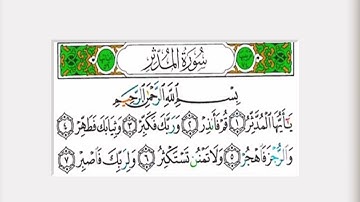 سُورَةُ الْمُدَّثِّرِ
بِسْمِ اللَّهِ الرَّحْمَٰنِ الرَّحِيمِ
يَٰٓأَيُّهَا الْمُدَّثِّرُ ١ قُمْ فَأَنذِرْ ٢ وَرَبَّكَ فَكَبِّرْ ٣ وَثِيَابَكَ فَطَهِّرْ ٤
وَالرُّجْزَ فَاهْجُرْ ٥ وَلَا تَمْنُن تَسْتَكْثِرُ ٦ وَلِرَبِّكَ فَاصْبِرْ ٧